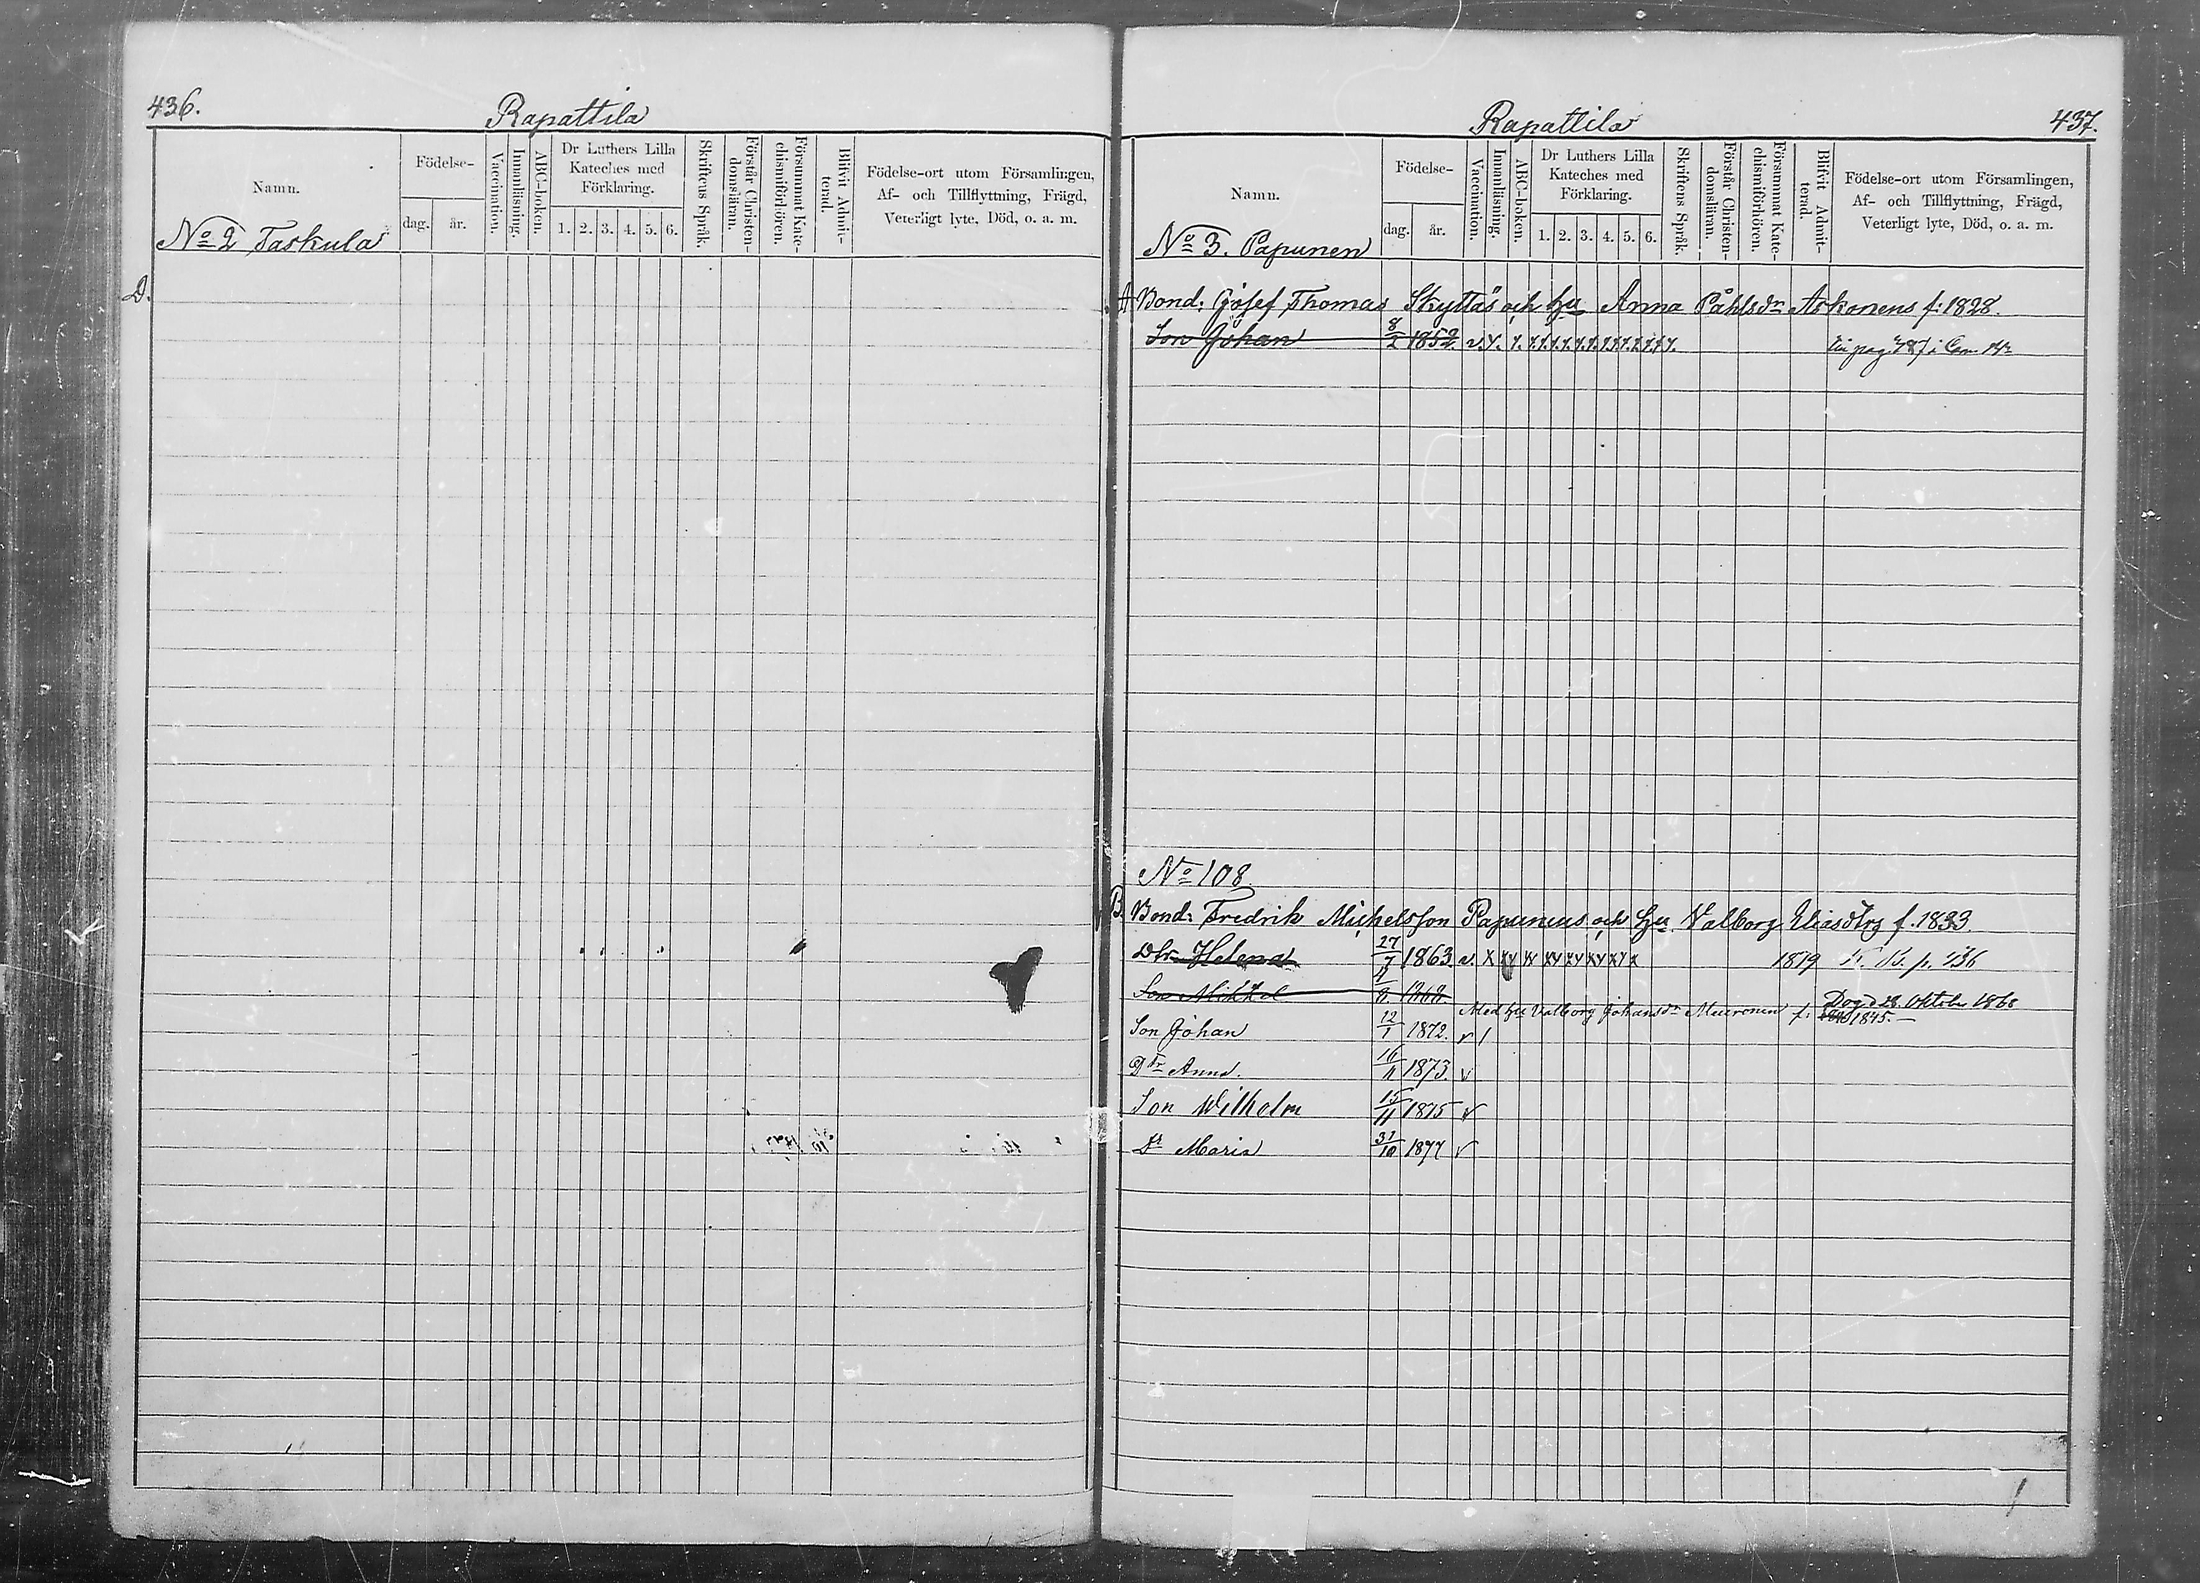 436.
Rapattila
Namn.
Födelse-
dag.
år.
Vaccination.
Innanläsning.
ABC-boken.
Dr Luthers Lilla
Kateches med
Förklaring.
1. 2. 3. 4. 5. 6.
Skriftens Språk.
Förstår Christen-
domsläran.
Försummat Kate-
chismiförhören.
Blifvit Admit-
terad.
Födelse-ort utom Församlingen,
Af- och Tillflyttning, Frägd,
Veterligt lyte, Död, o. a. m.
No 2 Taskula
D.
Rapattila
437.
Namn.
Födelse-
dag.
år.
Vaccination.
Innanläsning.
ABC-boken.
Dr Luthers Lilla
Kateches med
Förklaring.
1. 2. 3. 4. 5. 6.
Skriftens Språk.
Förstår Christen-
domsläran.
Försummat Kate-
chismiförhören.
Blifvit Admit-
terad.
Födelse-ort utom Församlingen,
Af- och Tillflyttning, Frägd,
Veterligt lyte, Död, o. a. m.
No 3. Papunen
A Bond: Josef Thomas Skyttäs och hu Anna Påhlsdr Askonens f: 1828.
Son Johan 8/2 1852. v.
No 108
B. Bond: Fredrik Michelsson Papuneus och hu Valborg Eliasdtrg f. 1833
Dtr Helena 27/7 1863. v. 1879 p. 436
Son Mikkel 4/8 1868 Dog d 28. Oktober 1868
Med hu Valborg Johansdr Muuronen f: 1845.
Son Johan 12/1 1872. v /
Dtr Anna. 16/11 1873. v
Son Wilhelm 15/11 1875 v
Dr Maria 31/10 1877 v